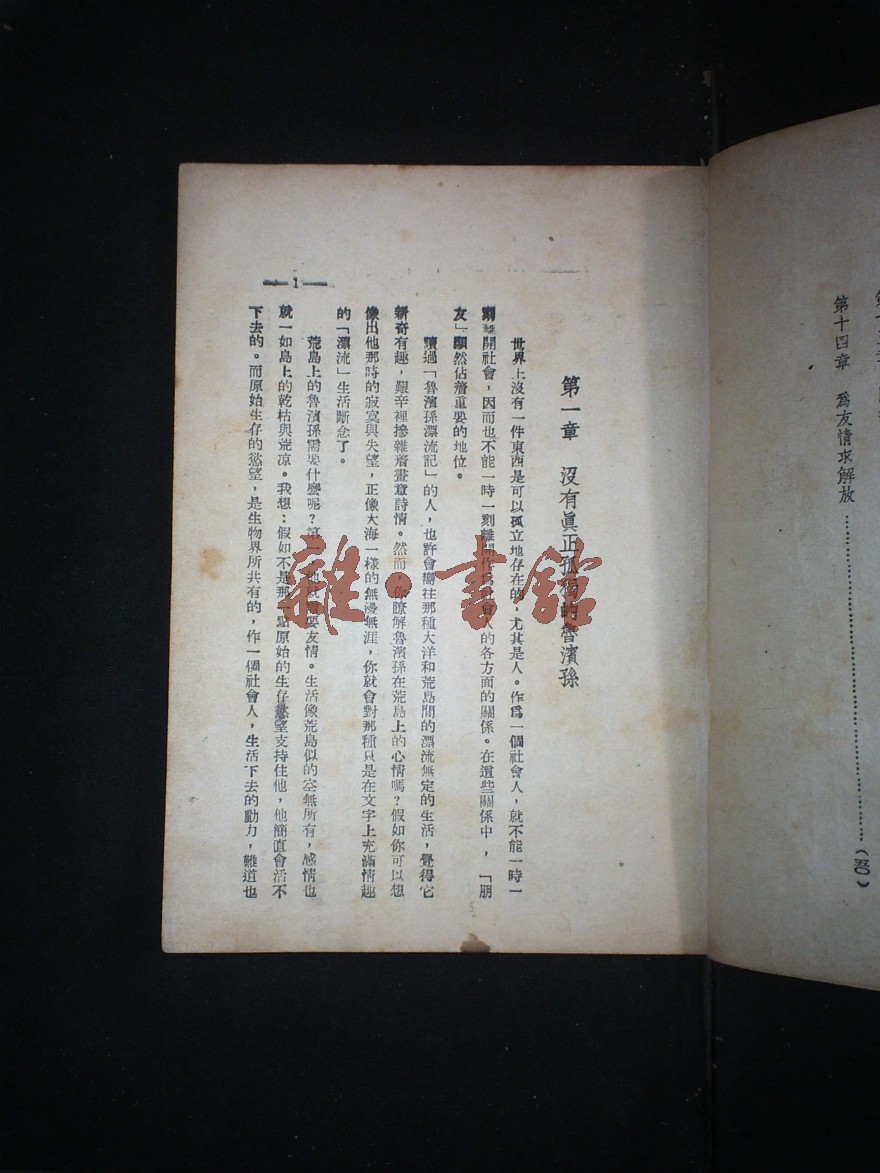 第十四章　爲友情求解放……………………………………（吾）
第一章　沒有眞正孤獨的魯濱孫
世界上沒有一件東西是可以孤立地存在的，尤其是人。作爲一個社會人，就不能一時一
刻離開社會，因而也不能一時一刻離開作爲社會人的各方面的關係。在這些關係中，「朋
友」顯然佔着重要的地位。
讀過「魯濱孫漂流記」的人，也許會嚮往那種大洋和荒島間的漂流無定的生活，覺得它
新奇有趣，艱辛裡摻雜着畫意詩情。然而，你瞭解魯濱孫在荒島上的心情嗎？假如你可以想
像出他那時的寂寞與失望，正像大海一樣的無邊無涯，你就會對那種只是在文字上充滿情趣
的「漂流」生活斷念了。
荒島上的魯濱孫需要什麼呢？第一，他就需要友情。生活像荒島似的空無所有，感情也
就一如島上的乾枯與荒凉。我想：假如不是那一點原始的生存慾望支持住他，他簡直會活不
下去的。而原始生存的慾望，是生物界所共有的，作一個社會人，生活下去的動力，難道也
— 1 —
雜·書館